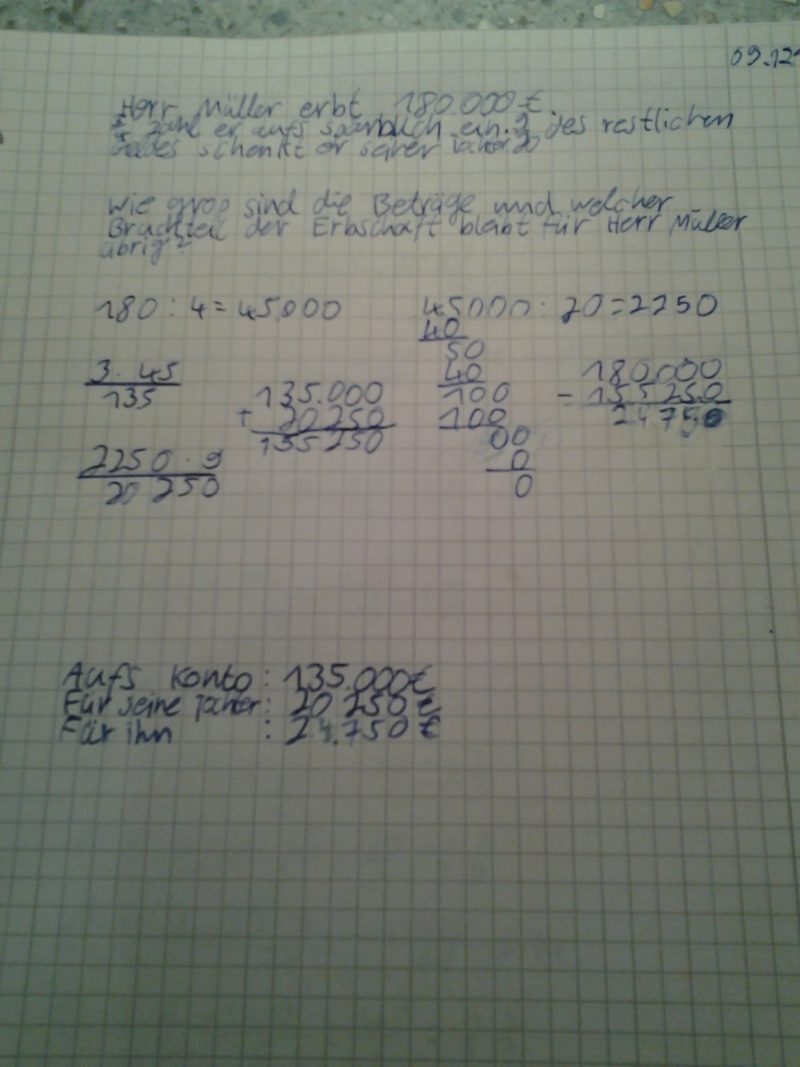 09.12
Herr Müller erbt 180.000 €.
er aufs sparbuch ein. 9 des restlichen
Geldes schenkt er seiner Tochter. 20
Wie groß sind die Beträge und welcher
Bruchteil der Erbschaft bleibt für Herr Müller
übrig?
180 : 4 = 45.000
45000 : 20 = 2250
40
50
40
100
100
00
0
0
3 · 45
135
135.000
+ 20 250
155 250
180.000
- 155 250
24750
2250 · 9
20 250
Aufs Konto : 135.000€
Für seine Tochter: 20 250 €
Für ihn : 24.750 €